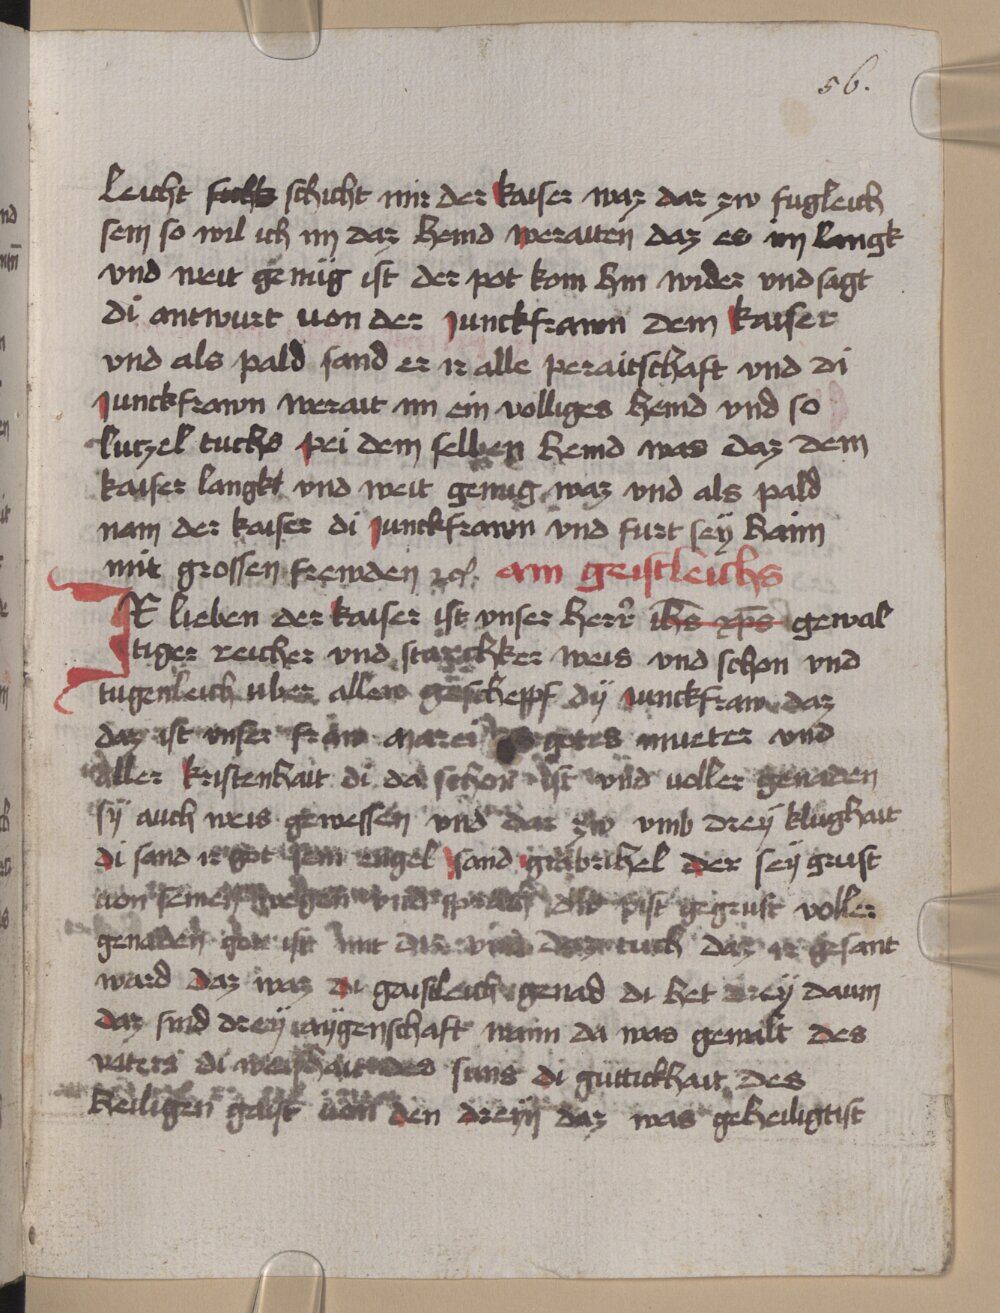 56.
leicht schicht mir der kaiser waz dar zw fugleich
sein so wil ich im daz hemd weraiten daz es im langk
vnd weit genüg ist der pot kom hin wider vnd sagt
di antwurt uon der junckfrawn dem kaiser
vnd als pald sand er ir alle peraitschaft vnd di
junckfrawn werait im ein volliges hemd vnd so
lutzel tuchs pei dem selben hemd was daz dem
kaiser langkt vnd weit genug waz vnd als pald
nam der kaiser di junckfrawn vnd furt seÿ haim
mit grossen frewden zc. ain geistleichs
Ir lieben der kaiser ist vnser herr ihs xps gewal
tiger reicher vnd starchker weis vnd schon vnd
tugenleich uber allew geschepf dÿ junckfraw daz
daz ist vnser fraw marei gotes mueter vnd
aller kristenhait di da schon ist vnd uoller genaden
sÿ auch weis gewessen vnd dar zw vmb dreÿ klughait
di sand ir got sein engel sand gabrihel der seÿ grust
uon seinen wegen vnd sprach pist gegrust voller
genaden got ist mit dir vnd daz tuch daz ir gesant
ward daz waz di gaistleich genad di het dreÿ daum
daz sind dreÿ aÿgenschaft wann da was gewalt des
vaters di weishait des suns di guttickhait des
heiligen geist uon den dreyn daz was geheiligtist